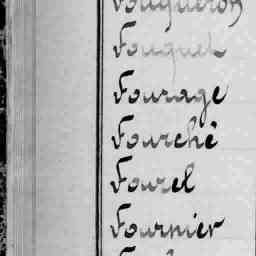 Fougueron
Fouquet
Fourage
Fourché
Fourel
Fournier